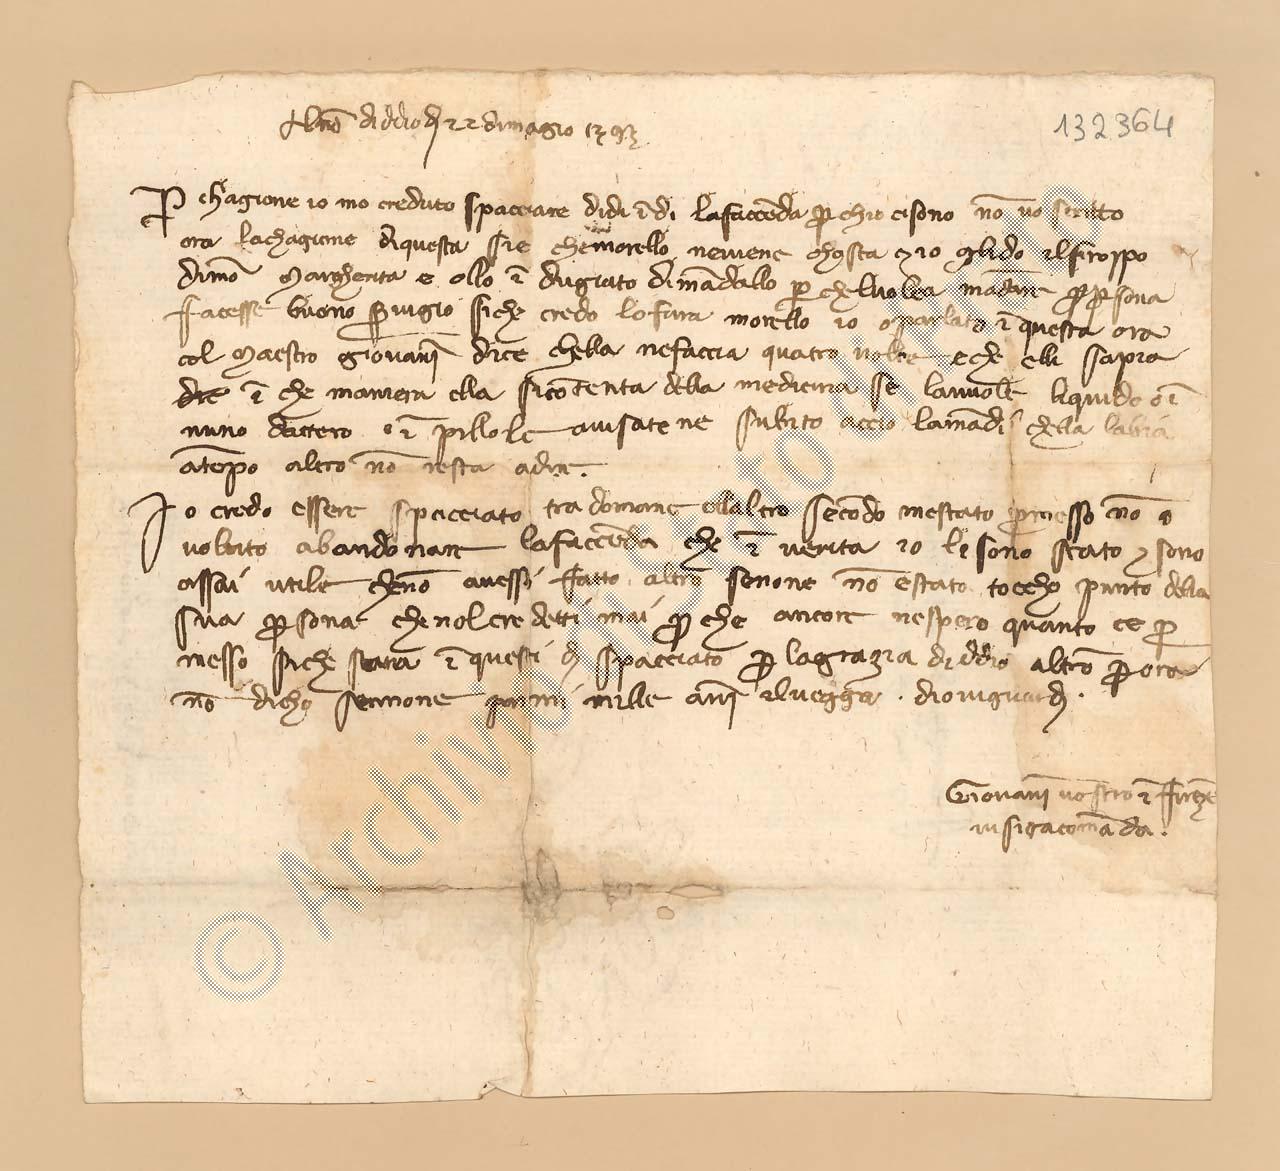 132364
Al nō di ddio dì 22 di magio 1393
P chagione io mo creduto spacciare didi īdi lafaccēda p chio cisono nō vo scritto
ora lachagione diquesta sie chemorello neviene chosta 7 io mādo ilsiroppo
dimōa Margherita e ollo ī dugiato dimādallo p chelvolea mādare p psona
facesse buono svigio siche credo lofara morello io o parlato ī questa ora
col Maestro giovanī dice chella nefaccia quatro volte e che elli sapra
dire ī che maniera ella sicōtenta della medicina se lavuole liquido o ī
nuno dattero o ī pillole avisatene subito accio lamādi chella labia
atēpo altro nō resta adire.
Io credo essere spacciato tra domane ellaltro secōdo mestato pmesso nō o
voluto abandonare lafaccēda che ī verita io li sono stato 7 sono
assai utile chenō avessi fatto altro senone nō estato toccho punto della
sua psona chenolcredetti mai p che ancore nespero quanto ce p
messo siche stara ī questi dì spacciato p lagrazia diddio altro p ora
nō dicho sennone parmi mille anī ilvegga . diovighuardi .
Giovanī vostro ī Firēze
visiracomāda .
© Archivio di Stato di Prato